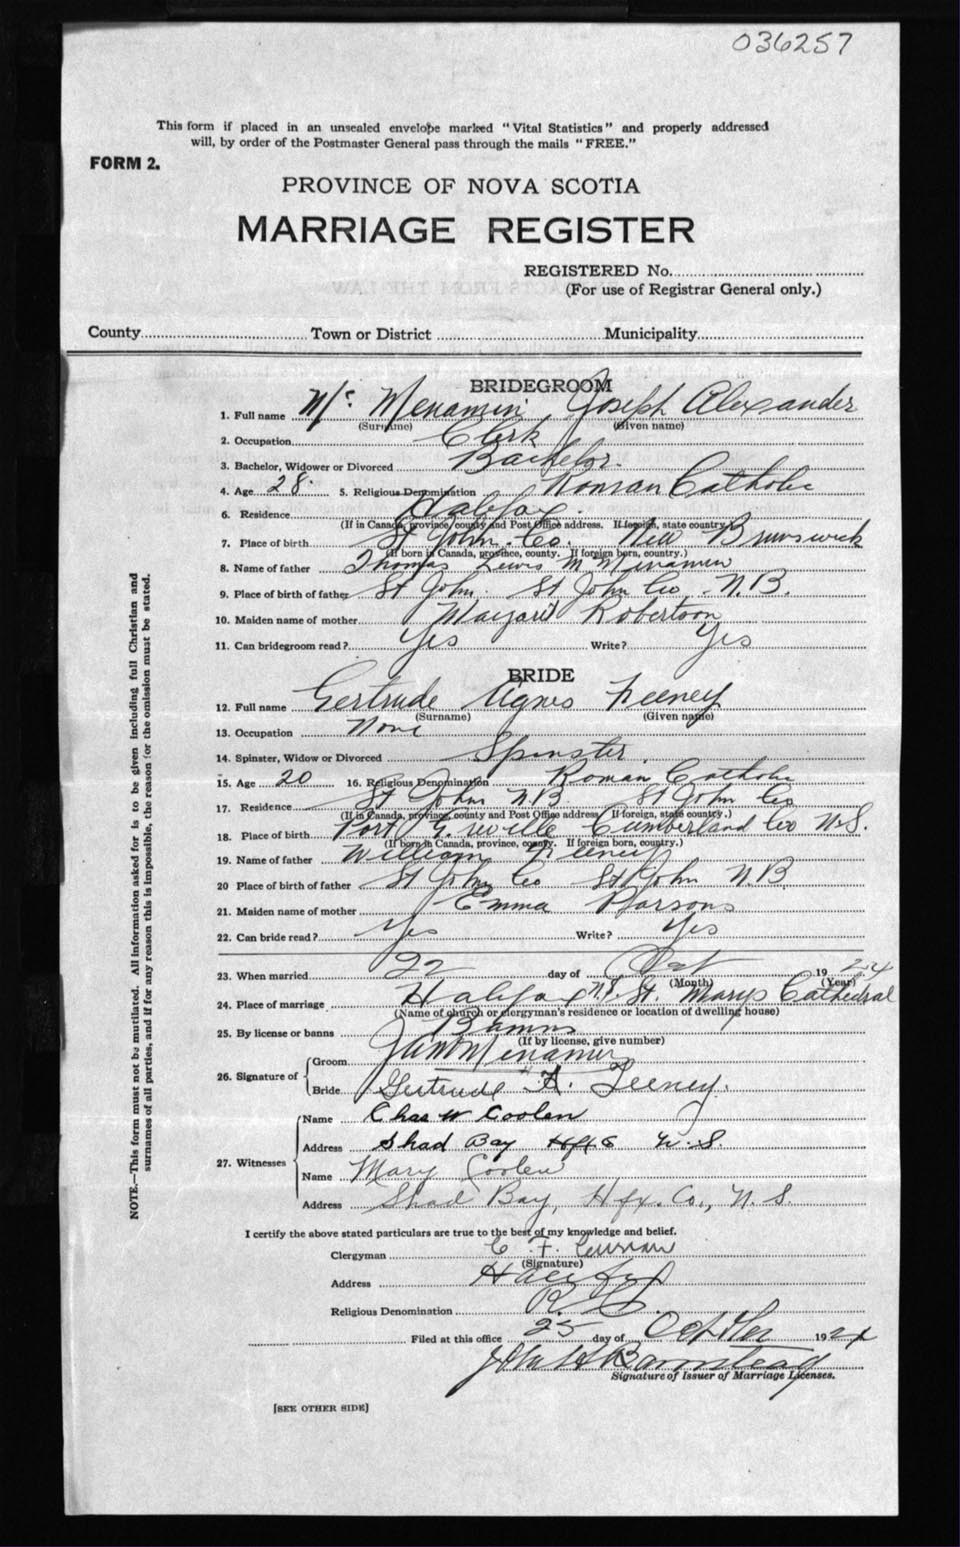 036257
This form if placed in an unsealed envelope marked "Vital Statistics" and properly addressed
will, by order of the Postmaster General pass through the mails "FREE."
FORM 2.
PROVINCE OF NOVA SCOTIA
MARRIAGE REGISTER
REGISTERED No.
(For use of Registrar General only.)
County Town or District Municipality
BRIDEGROOM
1. Full name Mc Menamin, Joseph Alexander
(Surname) (Given name)
2. Occupation Clerk
3. Bachelor, Widower or Divorced Bachelor.
4. Age 28. 5. Religious Denomination Roman Catholic
6. Residence Halifax.
(If in Canada, province/county and Post Office address. If foreign, state country.)
7. Place of birth St John. Co. New Brunswick
(If born in Canada, province, county. If foreign born, country.)
8. Name of father Thomas Lewis McMenamin
9. Place of birth of father St John. St John Co. N.B.
10. Maiden name of mother Margaret Robertson
11. Can bridegroom read? Yes Write? Yes
BRIDE
12. Full name Gertrude Agnes Feeney
(Surname) (Given name)
13. Occupation None
14. Spinster, Widow or Divorced Spinster.
15. Age 20 16. Religious Denomination Roman Catholic
17. Residence St John N.B St John Co
(If in Canada, province, county and Post Office address. If foreign, state country.)
18. Place of birth Port Greville Cumberland Co N.S.
(If born in Canada, province, county. If foreign born, country.)
19. Name of father William Feeney
20 Place of birth of father St John Co St John N.B
21. Maiden name of mother Emma Parsons
22. Can bride read? Yes Write? Yes
23. When married 22 day of Oct 1924
(Month) (Year)
24. Place of marriage Halifax N.S. St. Marys Cathedral
(Name of church or clergyman's residence or location of dwelling house)
25. By license or banns Banns
(If by license, give number)
26. Signature of Groom McMenamin
Bride Gertrude A. Feeney.
27. Witnesses Name Chas W Coolen
Address Shad Bay Hfx Co N.S.
Name Mary Coolen
Address Shad Bay, Hfx. Co., N.S.
I certify the above stated particulars are true to the best of my knowledge and belief.
Clergyman C. F. Curran
(Signature)
Address Halifax
Religious Denomination R.C.
Filed at this office 25 day of October 1924
John H Barnstead
Signature of Issuer of Marriage Licenses.
[SEE OTHER SIDE]
NOTE.—This form must not be mutilated. All information asked for is to be given including full Christian and
surnames of all parties, and if for any reason this is impossible, the reason for the omission must be stated.